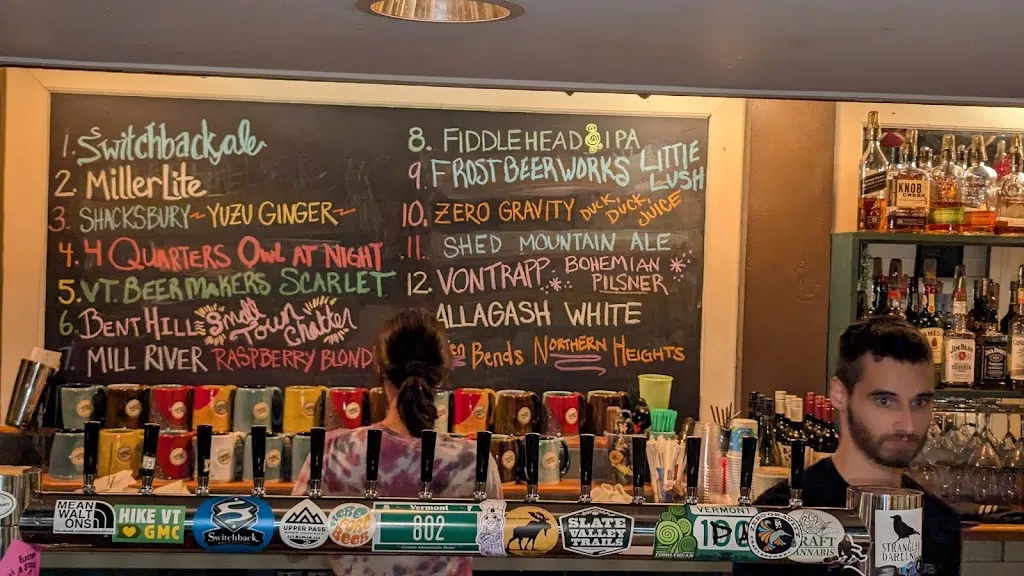 1. Switchback ale
2. Miller Lite
3. SHACKSBURY ~ YUZU GINGER ~
4. 4 QUARTERS OWL AT NIGHT
5. VT. BEERMAKERS SCARLET
6. BENT HILL Small Town Chatter
7. MILL RIVER RASPBERRY BLOND
8. FIDDLEHEAD IPA
9. FROST BEER WORKS LITTLE LUSH
10. ZERO GRAVITY DUCK, DUCK, JUICE
11. SHED MOUNTAIN ALE
12. VONTRAPP BOHEMIAN PILSNER
ALLAGASH WHITE
Bends NORTHERN HEIGHTS
KNOB CREEK
JIM BEAM
MEAN WALONS
HIKE VT
GMC
Switchback
UPPER PASS
BEER
Vermont
802
Green Mountain State
SLATE VALLEY TRAILS
FIDDLEHEAD
VERMONT
ZERO GRAVITY
CRAFT CANNABIS
STRANGLING DARLING